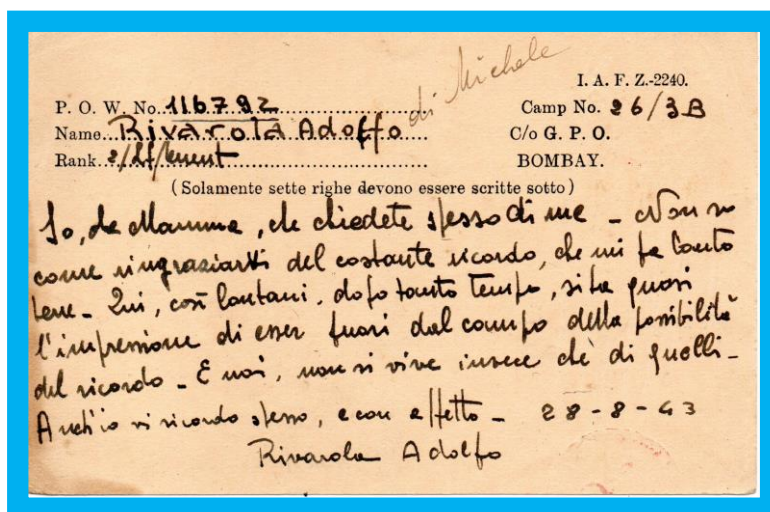 di Michele
I. A. F. Z.-2240.
P. O. W. No. 116792
Camp No. 26/3B
Name Rivarola Adolfo
C/o G. P. O.
Rank 2/Lf/tenent
BOMBAY.
(Solamente sette righe devono essere scritte sotto)
So, da Mamma, che chiedete spesso di me - Non so
come ringraziarvi del costante ricordo, che mi fa tanto
bene - Qui, così lontani, dopo tanto tempo, si ha quasi
l'impressione di esser fuori dal campo della possibilità
del ricordo - E noi, non si vive invece che di quelli -
Anch'io vi ricordo spesso, e con affetto - 28-8-43
Rivarola Adolfo